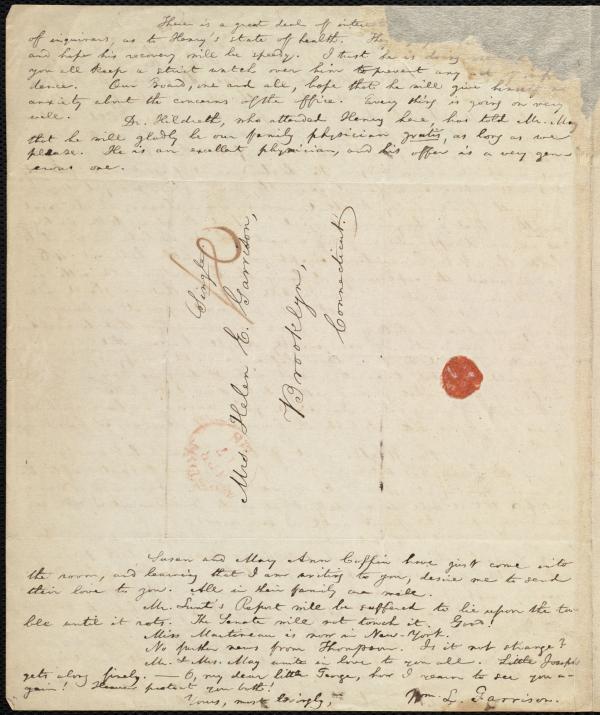 There is a great deal of inter
of inquirers, as to Henry's state of health. He
and hope his recovery will be speedy. I trust he is doing
you all keep a strict watch over him to prevent any
dence. Our Board, one and all, hope that he will give himself
anxiety about the concerns of the office. Every thing is going on very
well. Dr. Hildreth, who attended Henry here, has told Mr. May
that he will gladly be our family physician gratis, as long as we
please. He is an excellent physician, and his offer is a very gen-
erous one.
Single
Mrs. Helen E. Garrison,
Brooklyn,
Connecticut.
Susan and Mary Ann Coffin have just come into
the room, and learning that I am writing to you, desire me to send
their love to you. All in their family are well.
Mr. Lunt's Report will be suffered to lie upon the ta-
ble until it rots. The Senate will not touch it. Good!
Miss Martineau is now in New-York.
No further news from Thompson. Is it not strange?
Mr. & Mrs. May unite in love to you all. Little Joseph
gets along finely. — O, my dear little George, how I yearn to see you a-
gain! Heaven protect you both!
Yours, most lovingly,
Wm. L. Garrison.